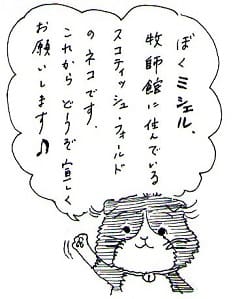 ぼくミシェル.
牧師館に住んでいる
スコティッシュ・フォールド
のネコです.
これから どうぞ 宜しく
お願いします♪